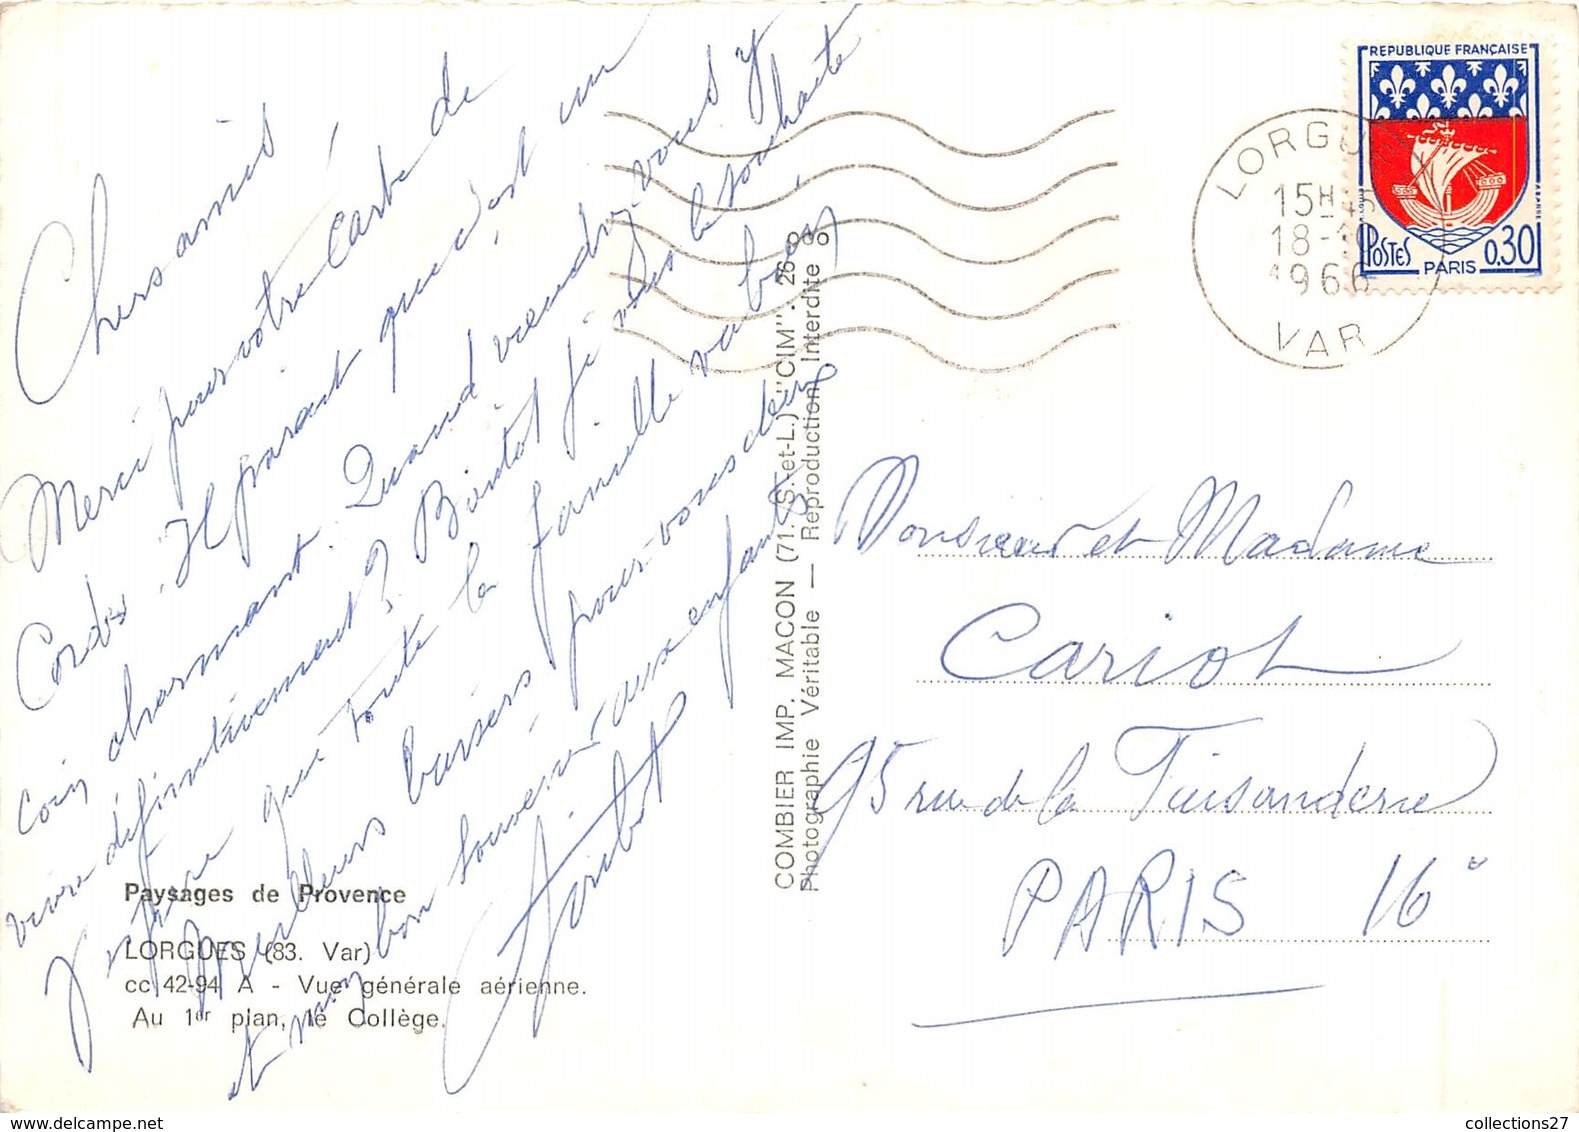 Chers amis
Merci pour votre carte de
Cordes. Il parait que c'est un
coin charmant. Quand viendrez vous y
vivre définitivement? Bientôt je vous le souhaite
J'espère que toute la famille va bien,
Meilleurs baisers pour vous deux
et mon bon souvenir aux enfants
Paysages de Provence
LORGUES (83. Var)
cc 42-94 A - Vue générale aérienne.
Au 1er plan, le Collège.
COMBIER IMP. MACON (71. S.-et-L.) "CIM"
Photographie Véritable — Reproduction Interdite
LORGUES
15H45
18-
1966
VAR
REPUBLIQUE FRANÇAISE
POSTES PARIS 0,30
Monsieur et Madame
Cariot
95 rue de la Faisanderie
PARIS 16e
collections27